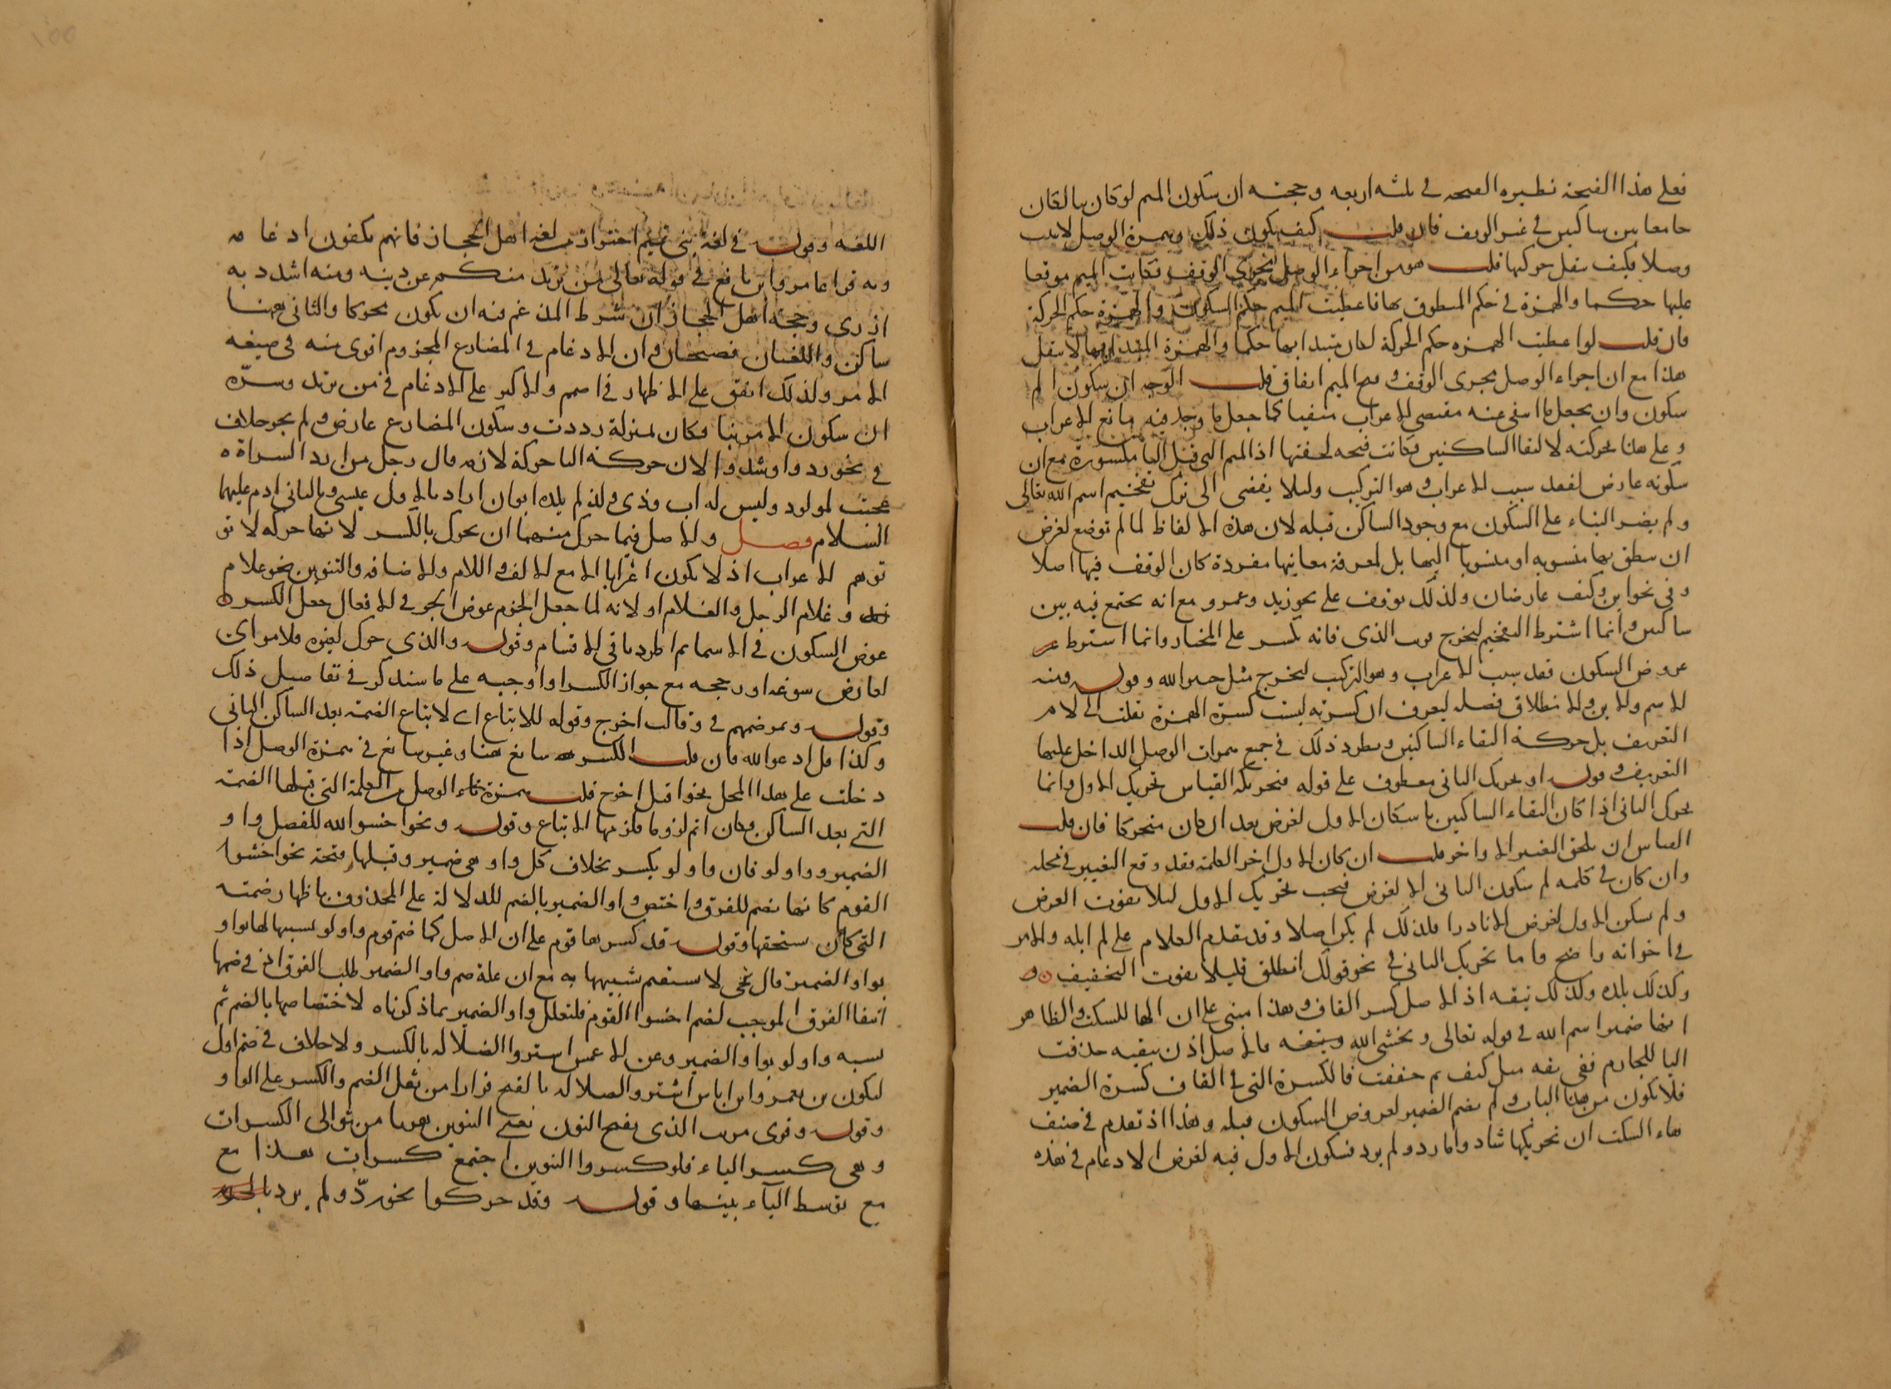 فعلى هذا الفتحة نظيره الفتحه في ثلثه اربعه وحجته ان سكون الميم لو كان بالقان
جامعا بين ساكنين في غير الوقف فان قلت كيف يكون ذلك وهمزة الوصل لا يثبت
وصلا فكيف ينقل حركتها قلت هو من اجراء الوصل مجرى الوقف فكانت الميم موقوفا
عليها حكما والهمزة في حكم المنطوق بها فاعطيت الميم حكم السكون والهمزة حكم الحركة
فان قلت لو اعطيت الهمزه حكم الحركة لكان مبتدا بها حكما والهمزة المبتدا بها لا ينقل
هذا مع ان اجراء الوصل مجرى الوقف فتح الميم اتفاق قلت الوجه ان سكون الم
سكون وان يجعل ما انتفى عنه مقتضى الاعراب منفيا كما جعل ما وجد فيه مانع الاعراب
وعلى هذا تحركته لالتقا الساكنين فكانت فتحه لخفتها اذ الميم التي قبل اليا مكسورة مع ان
سكونه عارض لفقد سبب الاعراب وهو التركيب ولئلا يفضى الى ترك تفخيم اسم الله تعالى
ولم يضر البناء على السكون مع وجود الساكن قبله لان هذه الالفاظ لما لم توضع لغرض
ان ينطق بها منسوبه او منسوبا اليها بل لمعرفة معانيها مفردة كان الوقف فيها اصلا
وفي نحو اين وكيف عارضان ولذلك يوقف على نحو زيد وعمرو مع انه يجتمع فيه بين
ساكنين وانما اشترط التفخيم ليخرج قرب الذى فانه يكسر على المختار وانما اشترط عر
عروض السكون فقد سبب الاعراب وهو التركيب ليخرج مثل خير الله وقوله ومنه
الاسم والابن والانطلاق فصله ليعرف ان كسرته ليست كسرة الهمزة نقلت الى لام
التعريف بل حركة التقاء الساكنين ويطرد ذلك في جمع همزات الوصل الداخل عليها
التعريف وقوله او تحريك الثانى معطوف على قوله فتحريكه القياس تحريك الاول وانما
يحرك الثانى اذا كان التقاء الساكنين باسكان الاول لغرض بعد ان كان متحركا فان قلت
القياس ان يلحق التغيير الاواخر قلت ان كان الاول اخر الكلمة فقد وقع التغيير في محله
وان كان في كلمه لم يكن سكون الثانى الا لغرض فيجب تحريك الاول لئلا يفوت الغرض
ولم يسكن الاول لغرض الا نادرا فلذلك لم يكن اصلا وقد تقدم الكلام على لم ابله والامر
في اخواته واضح واما تحريك الثانى في نحو قولك انطلق فليلا يفوت التخفيف
وكذلك يلده وكذلك تيقه اذ الاصل كسر القاف وهذا مبنى على ان الها للسكت والظاهر
انها ضمير اسم الله في قوله تعالى ويخشى الله ويتقه فالاصل اذن يتقيه حذفت
اليا للجازم فبقى يقه مثل كيف ثم خففت فالكسرة التي في القاف كسرة الضمير
فلا يكون من هذا الباب ولم يضم الضمير لعروض السكون قبله وهذا اذ تقدم في ضعف
هاء السكت ان تحريكها شاذ واما رد ولم يرد فسكون الاول فيه لغرض الادغام في هذه
اللغه وقوله في لغة بنى تميم احترازا من لغه اهل الحجاز فانهم يفكون ادغامه
وبه قرا عامر وابن نافع في قوله تعالى من يرتدد منكم عن دينه ومنه اشدد به
ازرى وحجه اهل الحجاز ان شرط المدغم فيه ان يكون محركا والثانى ههنا
ساكن واللغتان فصيحتان وان الادغام في المضارع المجزوم اقوى منه في صيغه
الامر ولذلك اتفق على الاظهار في اصمم والاكثر على الادغام في من يرتد وسرّه
ان سكون الامر بنا فكان بمنزلة رددت وسكون المضارع عارض ولم يجر خلاف
في نحو رد واوشد والان حركة اليا حركة لازمه قال رجل من ازد السراة
عجبت لمولود وليس له اب وذى ولد لم يلده ابوان اراد بالاول عيسى وبالثانى ادم عليهما
السلام فصل والاصل فيما حرك منهما ان يحرك بالكسر لانها حركه لا تو
توهم الاعراب اذ لا يكون اعرابا الا مع الالف واللام والاضافه والتنوين نحو غلام
زيد وغلام الرجل والغلام او لانه لما جعل الجزم عوض الجر في الافعال جعل الكسر
عوض السكون في الاسما ثم اطرد باقي الاقسام وقوله والذى حرك لغيره فلامر اى
لعارض سوغه او رجحه مع جواز الكسر او اوجبه على ما سنذكر في تفاصيل ذلك
وقوله ونحو ضمهم في وقالت اخرج وقوله للاتباع اى لاتباع الضمة بعد الساكن الثانى
وكذا قل ادعو الله فان قلت الكسر سائغ هنا وغير سائغ في همزة الوصل اذا
دخلت على هذا المحل نحو اقبل اخرج قلت همزة الوصل من الكلمة التي قبلها الضمة
التي بعد الساكن فكان اتم لزوما فلزمها الاتباع وقوله ونحو اخشو الله للفصل واو
الضمير وواو لو فان واو لو يكسر بخلاف كل واو هى ضمير وقبلها فتحة نحو اخشوا
القوم كانها تضم للفرق واختص واو الضمير بالضم للدلالة على المحذوف باظهار ضمته
التي كان يستحقها وقوله قد كسرها قوم على ان الاصل كما ضم قوم واو لو تشبيها لها بواو
بواو الضمير قال غى لا يستقيم تشبيهها به مع ان علة ضم واو الضمير طلب الفرق اذ في ضمها
انتفا الفرق الموجب لضم اخشوا القوم فلتعلل واو الضمير بما ذكرناه لاختصاصها بالضم ثم
تشبه واو لو بواو الضمير وعن الاعمش اشتروا الضلالة بالكسر ولا خلاف في ضم اول
ليكون بن يعمر وابن اياس اشتروا الضلاله بالفتح فرارا من ثقل الضم والكسر على الواو
وقوله وقرى مريب الذى بفتح النون يعنى التنوين هربا من توالى الكسرات
وهى كسر الياء فلو كسروا التنوين اجتمع كسرات هذا مع
مع توسط الياء بينها وقوله وقد حركوا نحو ردّ ولم يرد